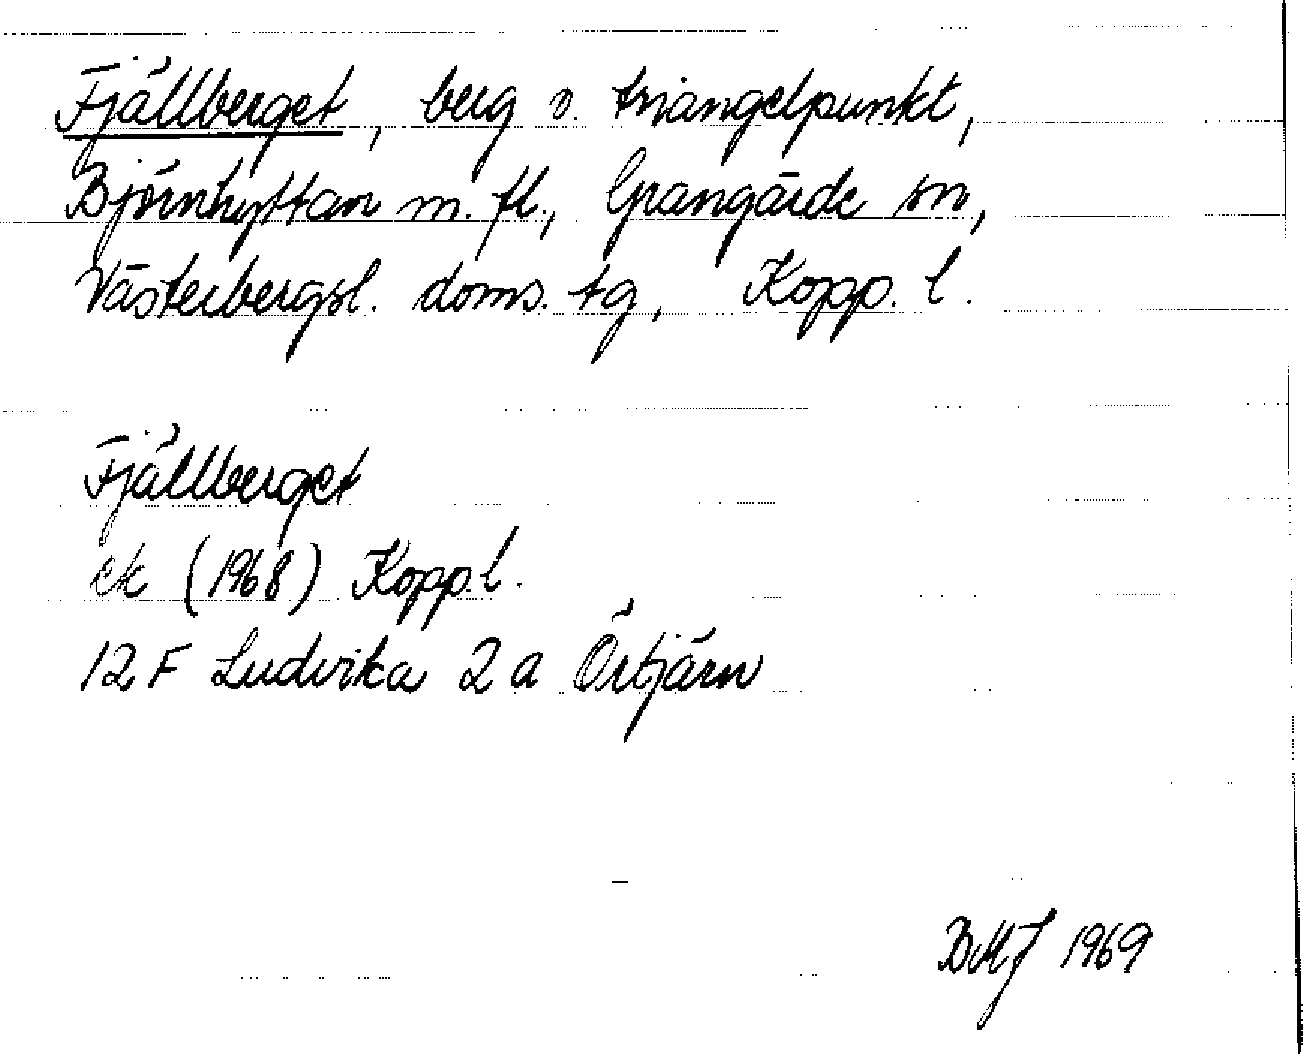 Fjällberget, berg o. triangelpunkt,
Björnhyttan m. fl., Grangärde sn,
Västerbergsl. doms. tg, Kopp. l.
Fjällberget
ek (1968) Kopp. l.
12 F Ludvika 2 a Örtjärn
BMJ 1969